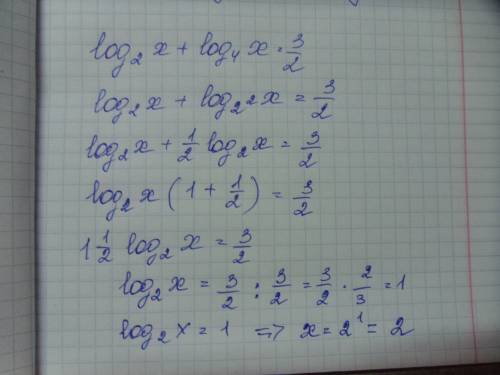 log₂ x + log₄ x = 3/2
log₂ x + log₂² x = 3/2
log₂ x + 1/2 log₂ x = 3/2
log₂ x (1 + 1/2) = 3/2
1 1/2 log₂ x = 3/2
log₂ x = 3/2 : 3/2 = 3/2 · 2/3 = 1
log₂ x = 1 => x = 2¹ = 2